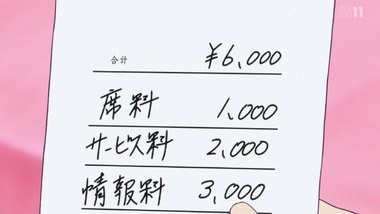 合计 ¥6,000
席料 1,000
サービス料 2,000
情報料 3,000